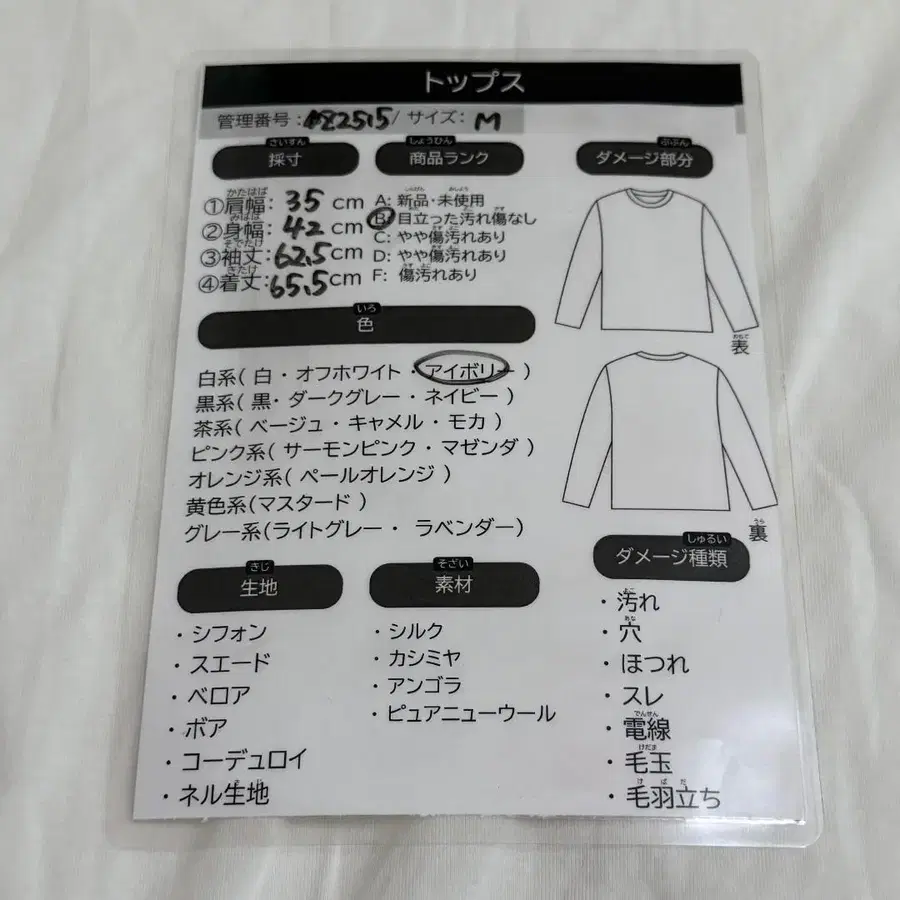 トップス
管理番号: 182515/ サイズ: M
さいすん
採寸
しょうひん
商品ランク
ぶぶん
ダメージ部分
かたはば
①肩幅: 35 cm
みはば
②身幅: 42 cm
そでたけ
③袖丈: 62.5 cm
きたけ
④着丈: 65.5 cm
A: 新品・未使用
B: 目立った汚れ傷なし
C: やや傷汚れあり
D: やや傷汚れあり
F: 傷汚れあり
おもて
表
いろ
色
白系( 白・オフホワイト・アイボリー )
黒系( 黒・ダークグレー・ネイビー )
茶系( ベージュ・キャメル・モカ )
ピンク系( サーモンピンク・マゼンダ )
オレンジ系( ペールオレンジ )
黄色系(マスタード )
グレー系(ライトグレー・ ラベンダー)
うら
裏
きじ
生地
・シフォン
・スエード
・ベロア
・ボア
・コーデュロイ
・ネル生地
そざい
素材
・シルク
・カシミヤ
・アンゴラ
・ピュアニューウール
しゅるい
ダメージ種類
・汚れ
あな
・穴
・ほつれ
・スレ
でんせん
・電線
けだま
・毛玉
けばだ
・毛羽立ち